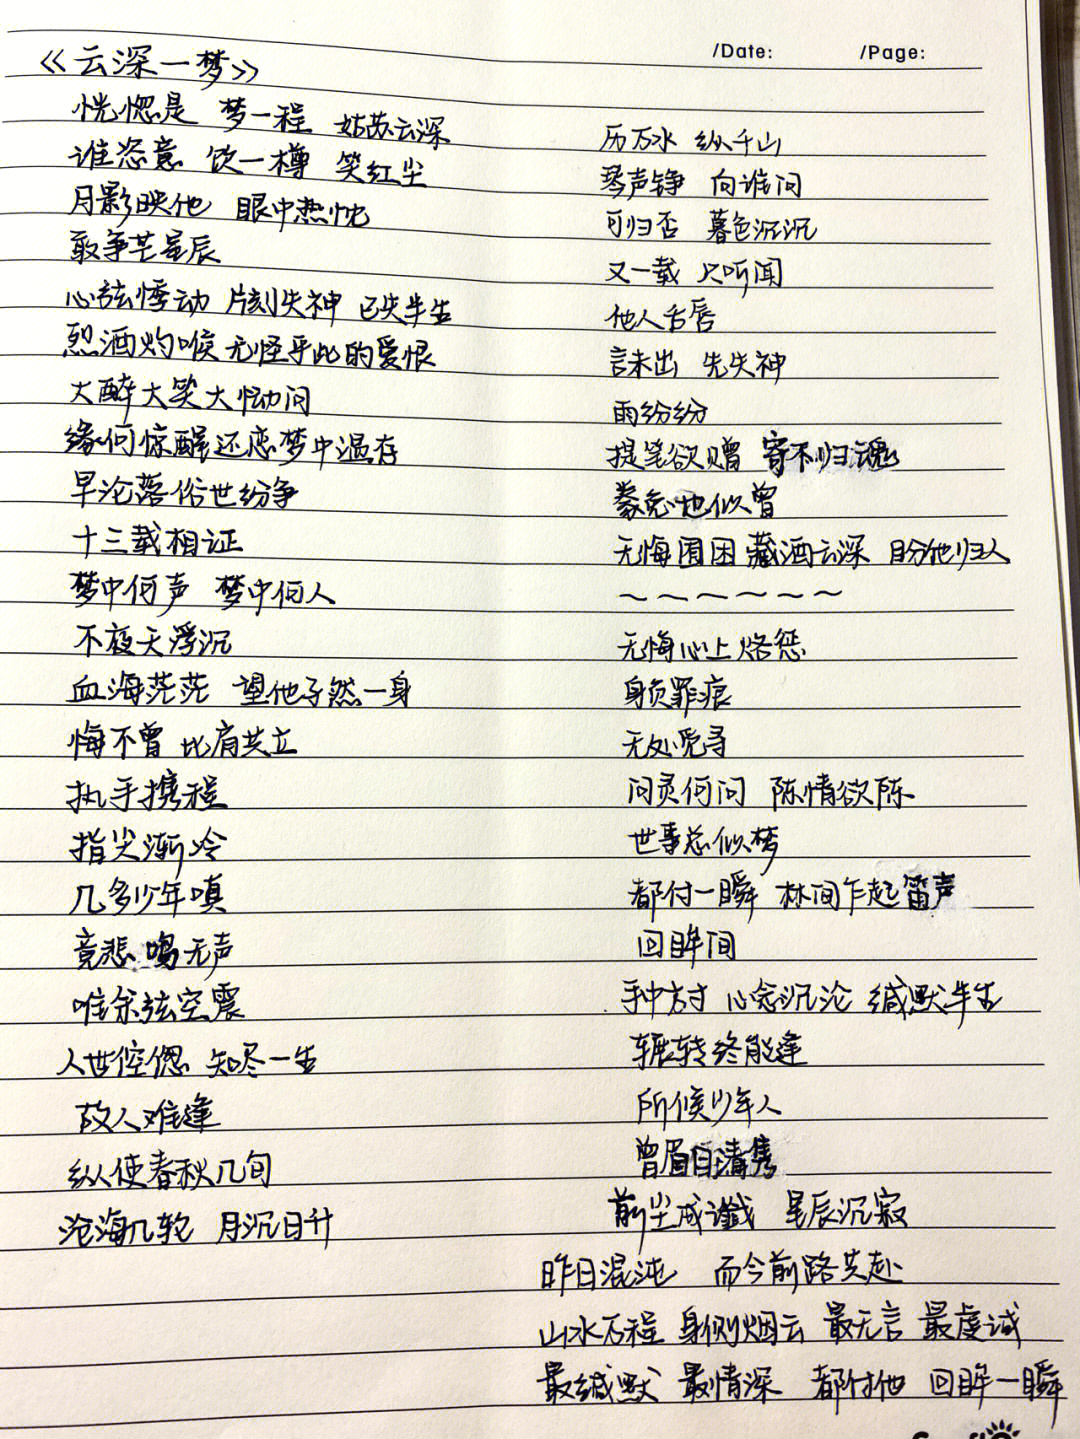 /Date: /Page:
《云深一梦》
恍惚是 梦一程 姑苏云深
谁恣意 饮一樽 笑红尘
月影映他 眼中热忱
敢争芒星辰
心弦悸动 片刻失神 已失半生
烈酒灼喉 无怪乎此的爱恨
大醉大笑大恸问
缘何惊醒还恋梦中温存
早沦落俗世纷争
十三载相证
梦中何声 梦中何人
不夜天浮沉
血海茫茫 望他孑然一身
悔不曾 比肩共立
执手携程
指尖渐冷
几多少年嗔
竟悲鸣无声
唯余弦空震
人世倥偬 知尽一生
故人难逢
纵使春秋几旬
沧海几轮 月沉日升
历万水 纵千山
琴声铮 向谁问
可归否 暮色沉沉
又一载 只听闻
他人舌唇
言未出 先失神
雨纷纷
提笔欲赠 寄不归魂
豢兔也似曾
无悔困囿 藏酒云深 盼他归人
~ ~ ~ ~ ~ ~
无悔心上烙惩
身负罪痕
无处觅寻
问灵何问 陈情欲陈
世事总似梦
都付一瞬 林间乍起笛声
回眸间
手中方寸 心念沉沦 缄默半生
辗转终能逢
所候少年人
曾眉目清隽
前尘成谶 星辰沉寂
昨日混沌 而今前路共赴
山水万程 身侧烟云 最无言 最虔诚
最缄默 最情深 都付他 回眸一瞬